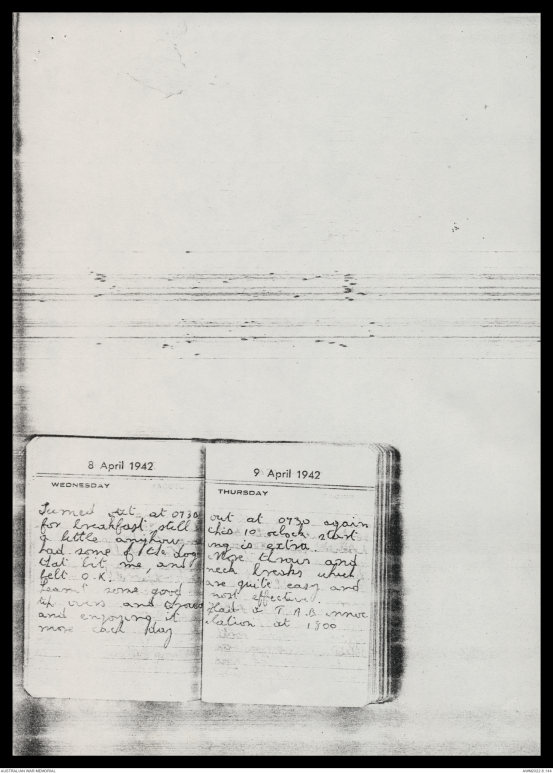 8 April 1942
WEDNESDAY
Turned out at 0730
for breakfast still
a little anyhow
had some of the dog
that bit me, and
felt O.K.
Learnt some good
tip overs and
and enjoying it
more each day
9 April 1942
THURSDAY
out at 0730 again
this 10 oclock start
ing is extra.
More throws and
neck breaks which
are quite easy and
most effective.
Had a T.A.B. innoc
ulation at 1900
AUSTRALIAN WAR MEMORIAL